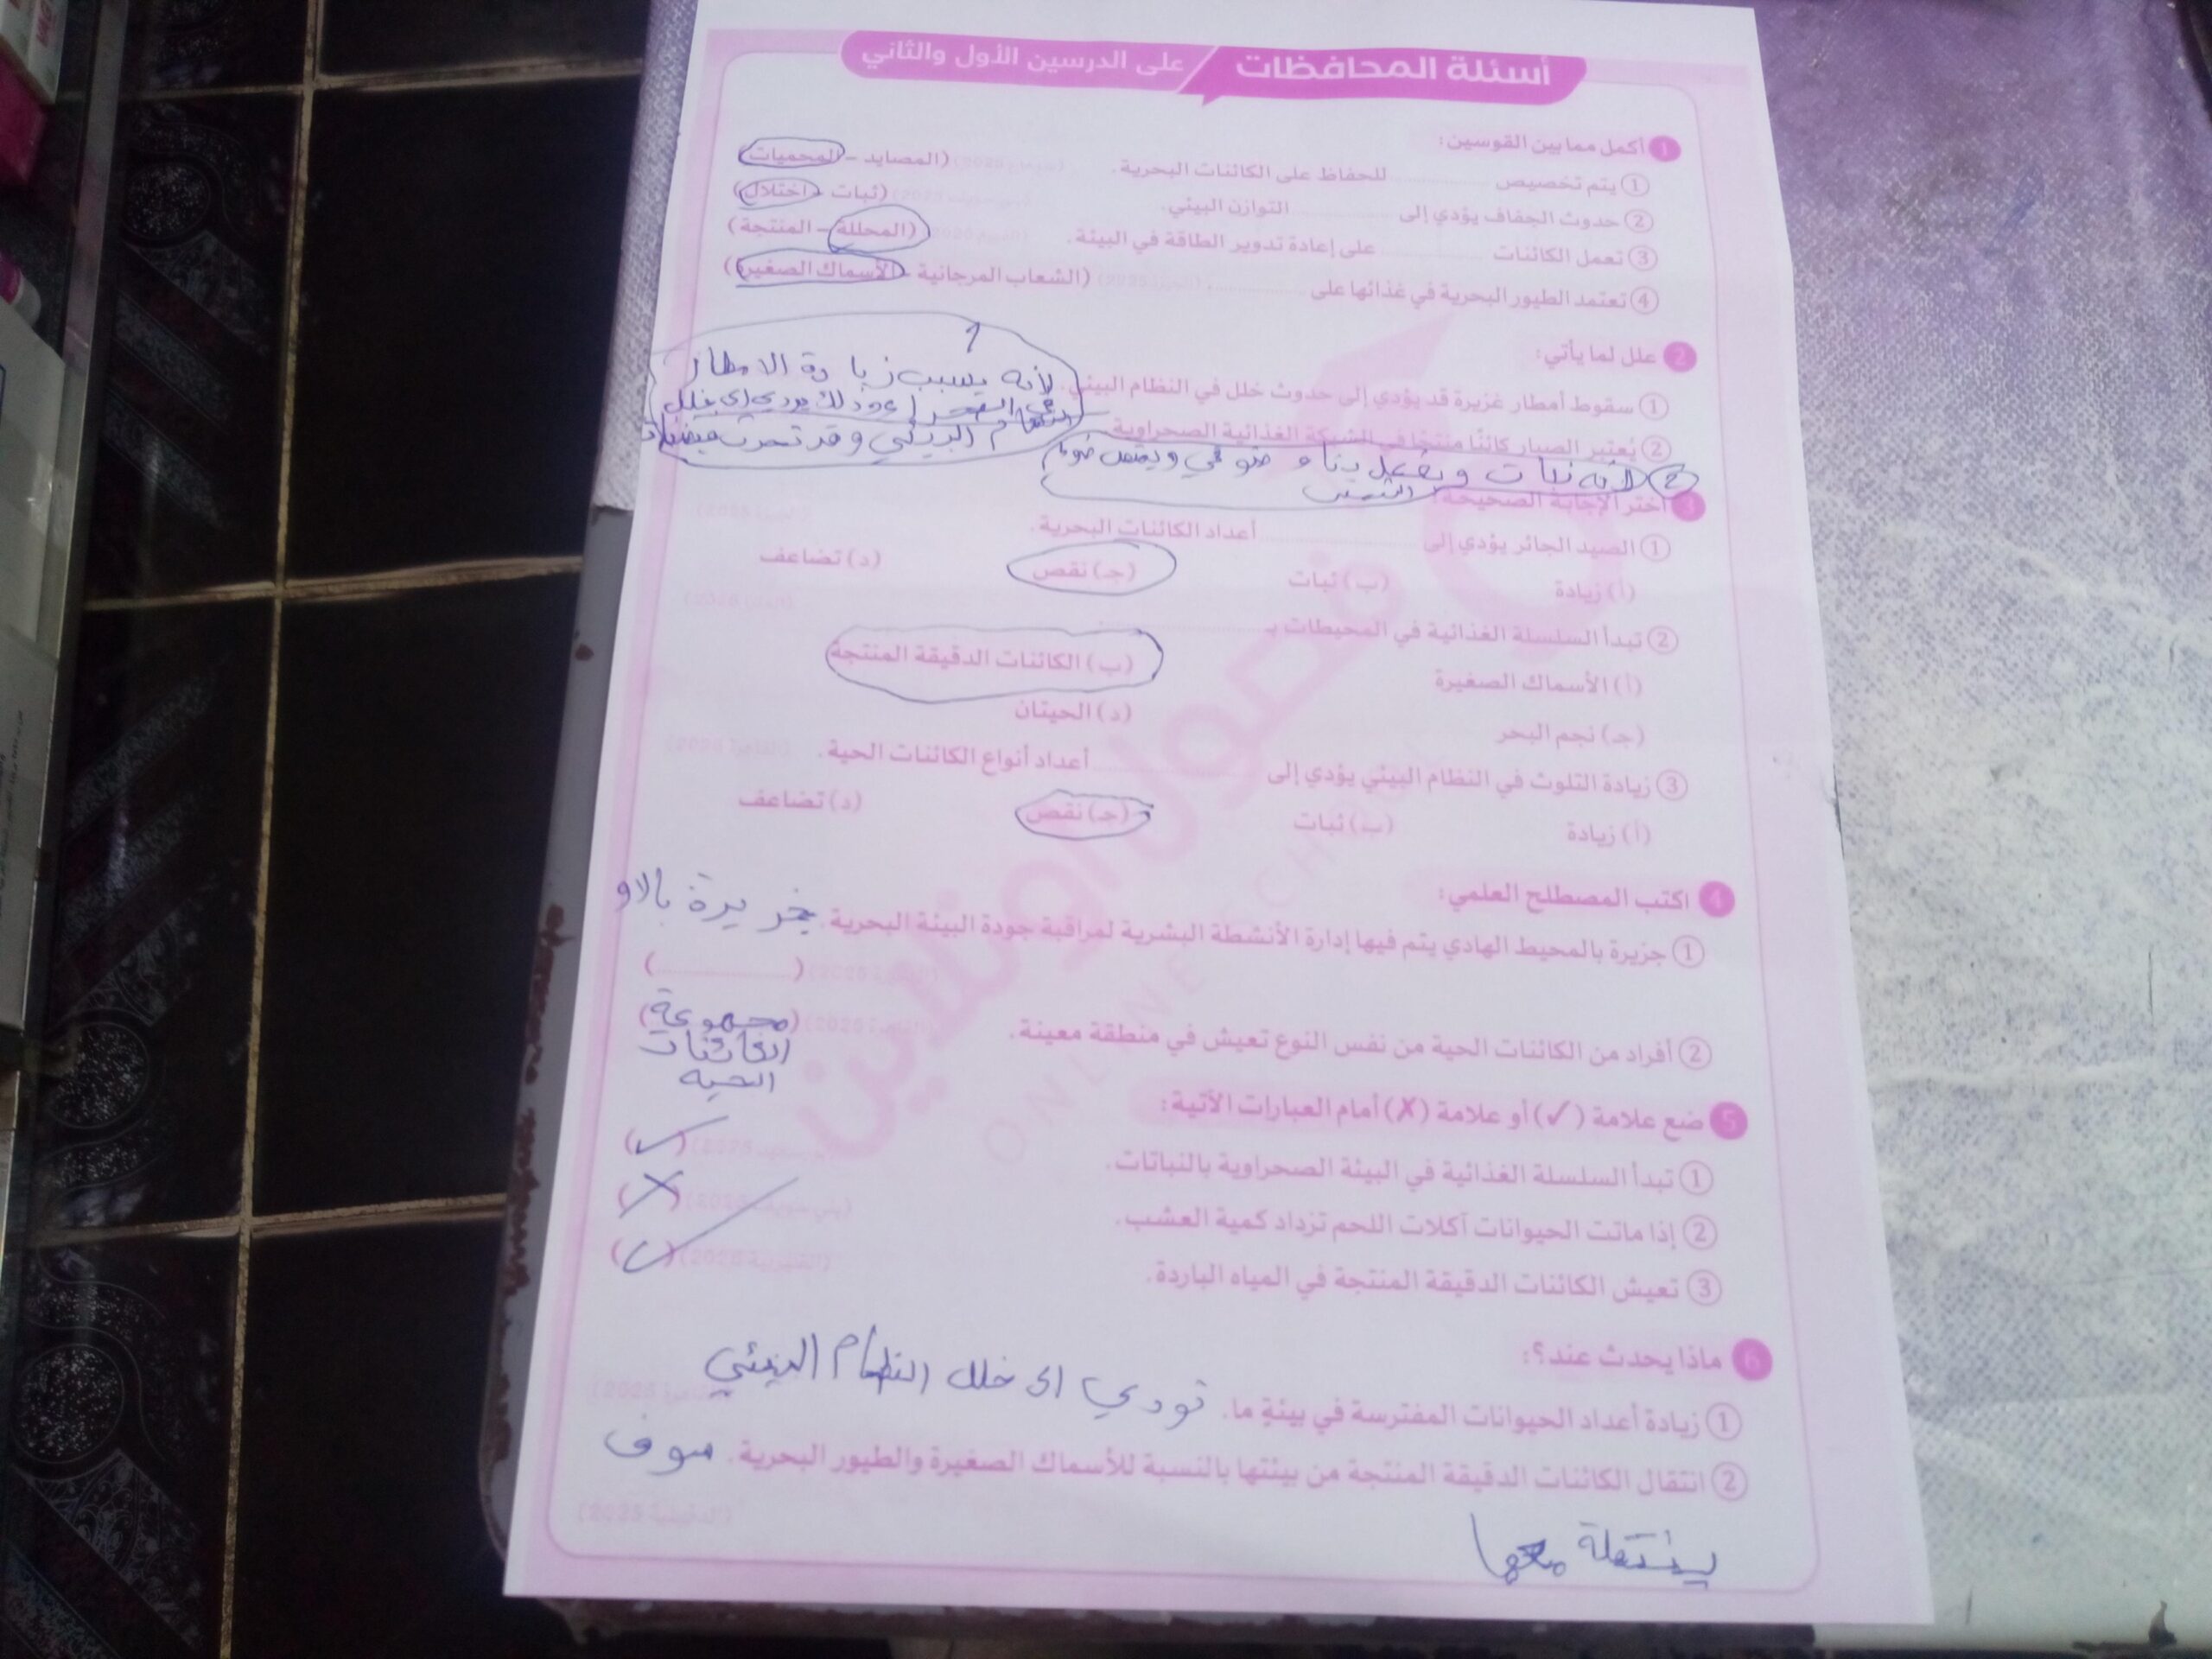 أسئلة المحافظات على الدرسين الأول والثاني
1 أكمل مما بين القوسين:
① يتم تخصيص ............ للحفاظ على الكائنات البحرية. (المصايد - المحميات)
② حدوث الجفاف يؤدي إلى ............ التوازن البيئي. (ثبات - اختلال)
③ تعمل الكائنات ............ على إعادة تدوير الطاقة في البيئة. (المحللة - المنتجة)
④ تعتمد الطيور البحرية في غذائها على ............ (الشعاب المرجانية - الأسماك الصغيرة)
2 علل لما يأتي:
① سقوط أمطار غزيرة قد يؤدي إلى حدوث خلل في النظام البيئي.
1
لأنه يسبب زيادة الامطار
في الصحراء وذلك يودي الى خلل
النظام البيئي وقد تحدث فيضانات
② يُعتبر الصبار كائنًا منتجًا في الشبكة الغذائية الصحراوية
② لأنه نبات ويعمل بناء ضوئي ويمتص ضوء
الشمس
3 اختر الإجابة الصحيحة:
① الصيد الجائر يؤدي إلى ............ أعداد الكائنات البحرية.
(أ) زيادة (ب) ثبات (جـ) نقص (د) تضاعف
② تبدأ السلسلة الغذائية في المحيطات بـ ............
(أ) الأسماك الصغيرة (ب) الكائنات الدقيقة المنتجة
(جـ) نجم البحر (د) الحيتان
③ زيادة التلوث في النظام البيئي يؤدي إلى ............ أعداد أنواع الكائنات الحية.
(أ) زيادة (ب) ثبات (جـ) نقص (د) تضاعف
4 اكتب المصطلح العلمي:
① جزيرة بالمحيط الهادي يتم فيها إدارة الأنشطة البشرية لمراقبة جودة البيئة البحرية. جزيرة بالاو
(............)
② أفراد من الكائنات الحية من نفس النوع تعيش في منطقة معينة. (مجموعة)
الكائنات
الحيه
5 ضع علامة (✓) أو علامة (✗) أمام العبارات الآتية:
① تبدأ السلسلة الغذائية في البيئة الصحراوية بالنباتات. (✓)
② إذا ماتت الحيوانات آكلات اللحم تزداد كمية العشب. (بني سويف 2025) (✗)
③ تعيش الكائنات الدقيقة المنتجة في المياه الباردة. (✓)
6 ماذا يحدث عند؟:
① زيادة أعداد الحيوانات المفترسة في بيئةٍ ما. تودي الى خلل النظام البيئي
② انتقال الكائنات الدقيقة المنتجة من بيئتها بالنسبة للأسماك الصغيرة والطيور البحرية. سوف
(الدقهلية 2025)
ينتقلة معها
فصول أونلاين
ONLINE SCHOOL